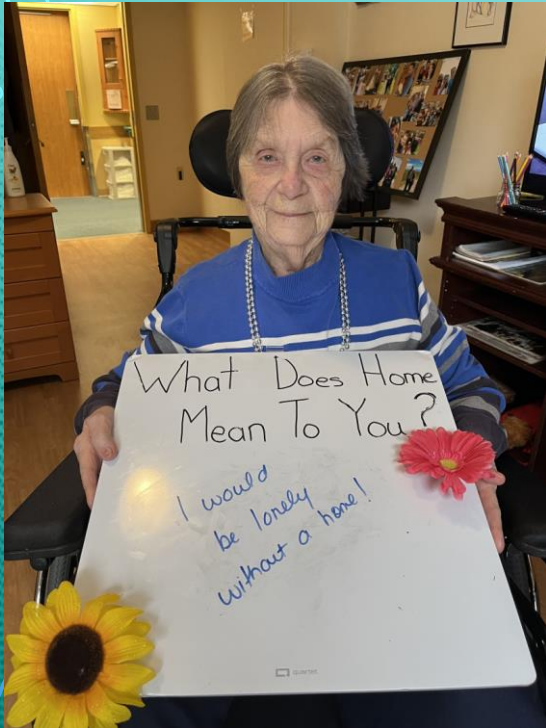 What Does Home
Mean To You?
I would
be lonely
without a home!
quartet